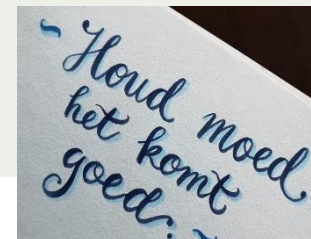 ~ Houd moed
het komt
goed. ~